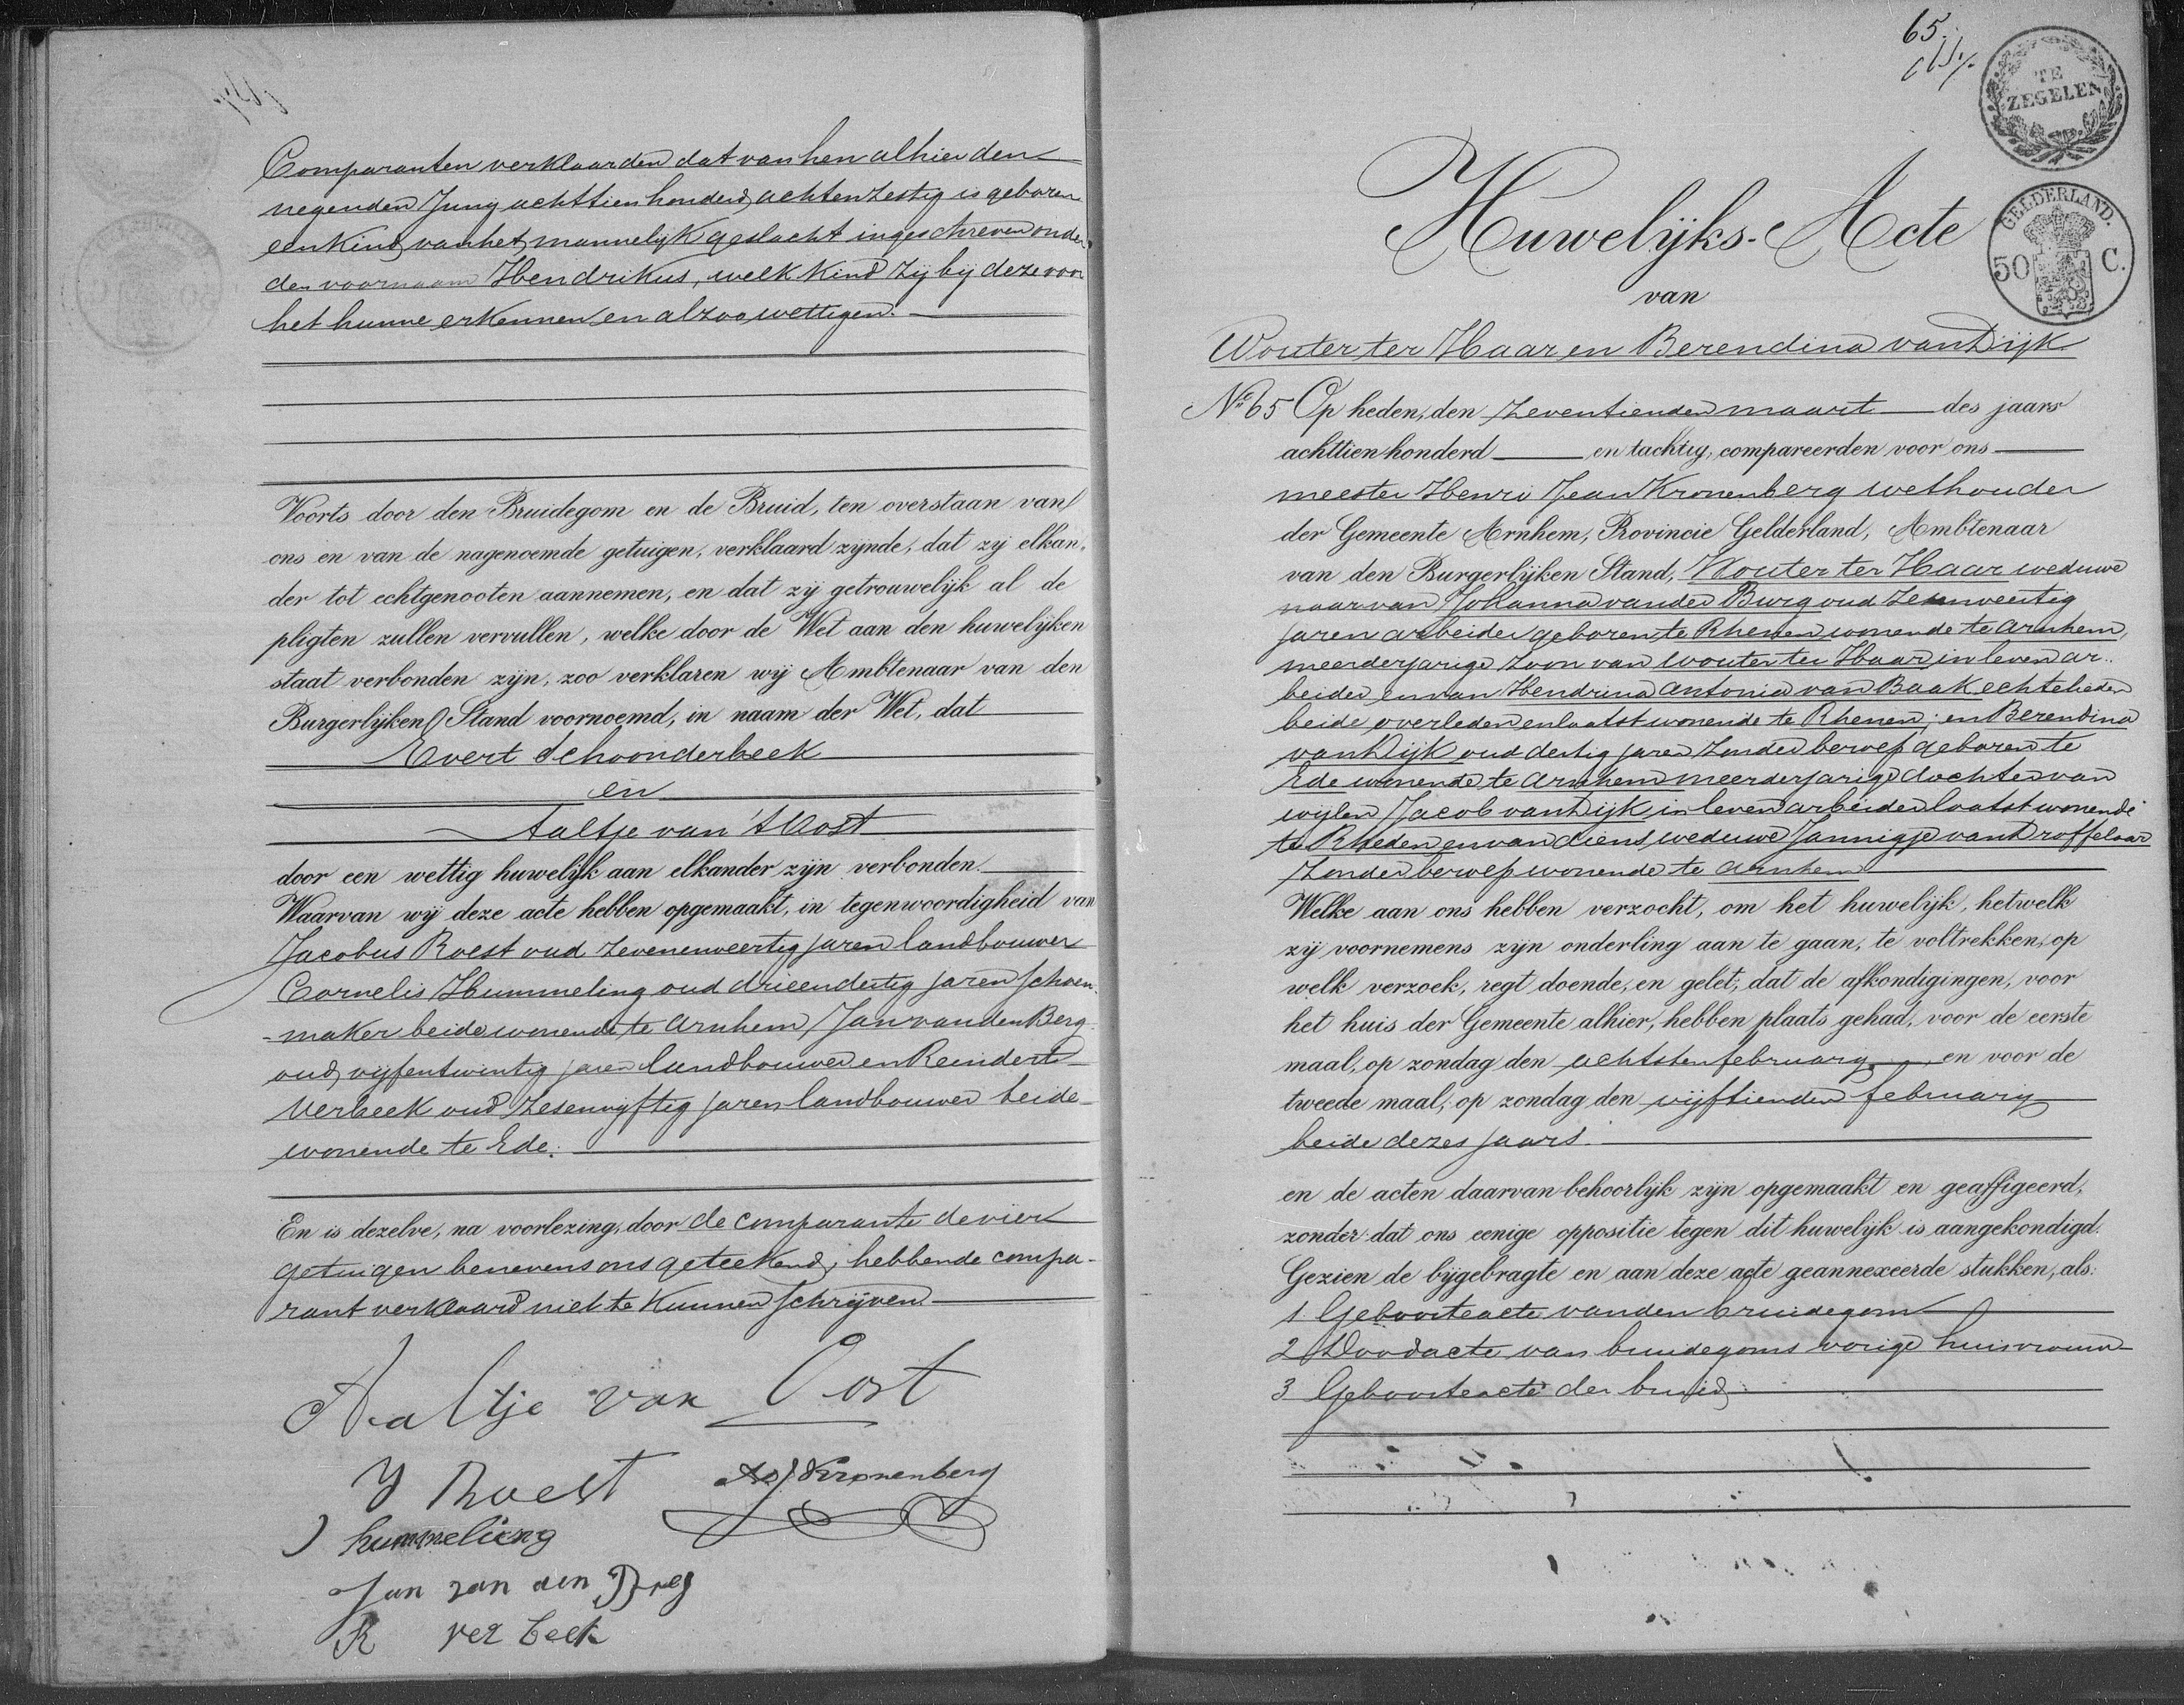 Comparanten verklaarden dat van hen alhier den
negenden Juny achttienhonderd achtenzestig is geboren
een kind van het mannelijk geslacht ingeschreven onder
den voornaam Hendrikus, welk kind zij bij deze voor
het hunne erkennen en alzoo wettigen.
Voorts door den Bruidegom en de Bruid, ten overstaan van
ons en van de nagenoemde getuigen, verklaard zijnde, dat zij elkan-
der tot echtgenooten aannemen, en dat zij getrouwelijk al de
pligten zullen vervullen, welke door de Wet aan den huwelijken
staat verbonden zijn, zoo verklaren wij Ambtenaar van den
Burgerlijken Stand voornoemd, in naam der Wet, dat
Evert Schoonderbeek
en
Aaltje van 't Oost
door een wettig huwelijk aan elkander zijn verbonden.
Waarvan wij deze acte hebben opgemaakt, in tegenwoordigheid van
Jacobus Roest oud zevenenveertig jaren landbouwer
Cornelis Hummeling oud drieendertig jaren schoen-
-maker beide wonende te Arnhem, Jan van den Berg
oud vijfentwintig jaren landbouwer en Reindert
Verbeek oud zesenvijftig jaren landbouwer beide
wonende te Ede.
En is dezelve, na voorlezing, door de comparante de vier
getuigen benevens ons geteekend, hebbende compa-
rant verklaard niet te kunnen schrijven
Aaltje van Oost
J Roest
Kronenberg
hummelieng
Jan van den Breg
R ver beek
65.
TE
ZEGELEN
GELDERLAND.
50 C.
Huwelijks-Acte
van
Wouter ter Haar en Berendina van Dijk
No 65 Op heden, den zeventienden maart des jaars
achttienhonderd en tachtig, compareerden voor ons
meester Henri Jean Kronenberg wethouder
der Gemeente Arnhem, Provincie Gelderland, Ambtenaar
van den Burgerlijken Stand, Wouter ter Haar weduwe
naar van Johanna van der Burg oud
jaren arbeider geboren te Rhenen wonende te Arnhem,
meerderjarige zoon van Wouter ter Haar in leven ar-
beider en van Hendrina Antonia van Baak echtelieden
beide overleden en laatst wonende te Rhenen; en Berendina
van Dijk oud dertig jaren zonder beroep geboren te
Ede wonende te Arnhem meerderjarige dochter van
wijlen Jacob van Dijk in leven arbeider laatst wonende
te Rheden en van diens weduwe Jannigje van Droffelaar
zonder beroep wonende te Arnhem
Welke aan ons hebben verzocht, om het huwelijk, hetwelk
zij voornemens zijn onderling aan te gaan, te voltrekken; op
welk verzoek, regt doende, en gelet, dat de afkondigingen, voor
het huis der Gemeente alhier, hebben plaats gehad, voor de eerste
maal, op zondag den achtsten february en voor de
tweede maal, op zondag den vijftienden february
beide dezes jaars.
en de acten daarvan behoorlijk zijn opgemaakt en geaffigeerd,
zonder dat ons eenige oppositie tegen dit huwelijk is aangekondigd.
Gezien de bijgebragte en aan deze acte geannexeerde stukken, als:
1 Geboorteacte van den bruidegom
2 Doodacte van bruidegoms vorige huisvrouw
3 Geboorteacte der bruid